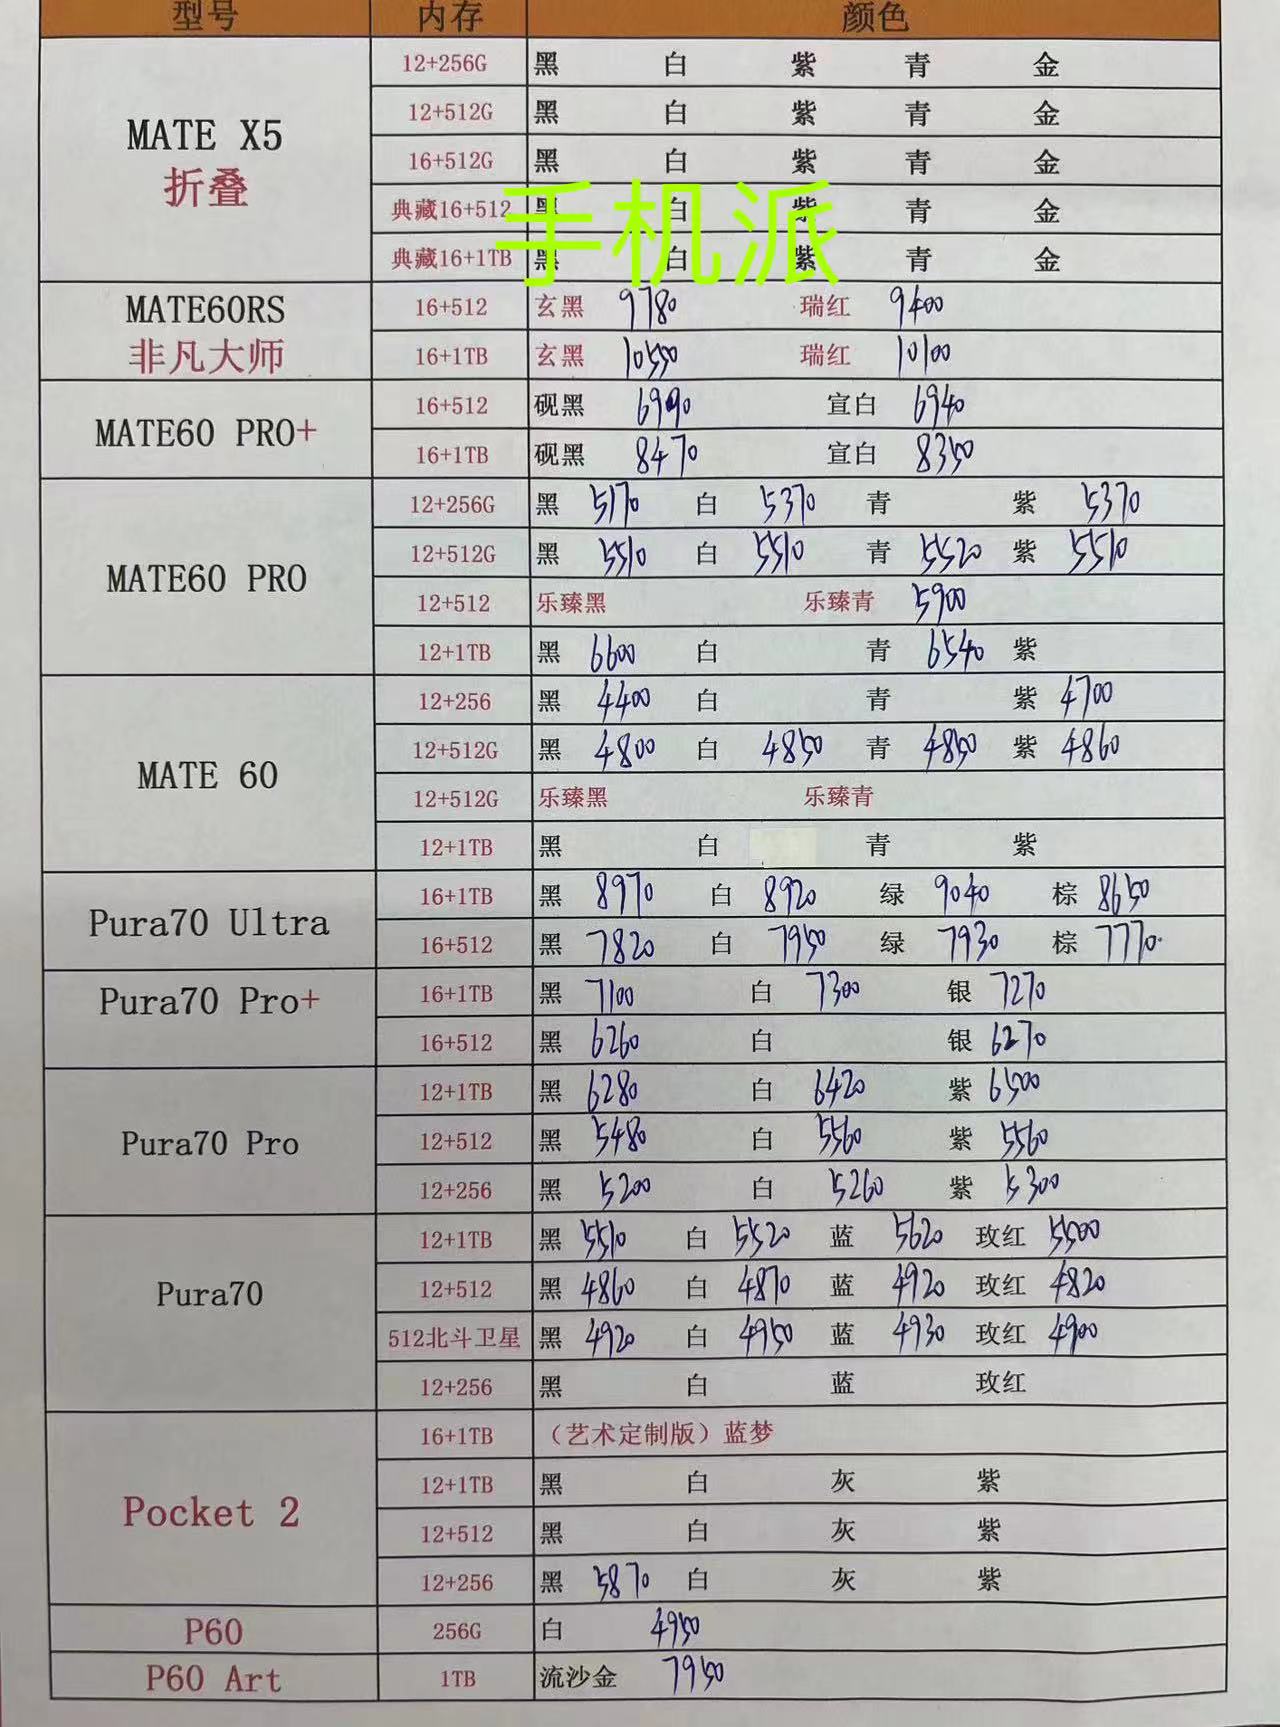 型号 内存 颜色
MATE X5 折叠
12+256G 黑 白 紫 青 金
12+512G 黑 白 紫 青 金
16+512G 黑 白 紫 青 金
典藏16+512 黑 白 紫 青 金
手机派
典藏16+1TB 黑 白 紫 青 金
MATE60RS 非凡大师
16+512 玄黑 9780 瑞红 9400
16+1TB 玄黑 10550 瑞红 10100
MATE60 PRO+
16+512 砚黑 6990 宣白 6940
16+1TB 砚黑 8470 宣白 8350
MATE60 PRO
12+256G 黑 5170 白 5370 青 紫 5370
12+512G 黑 5510 白 5510 青 5520 紫 5510
12+512 乐臻黑 乐臻青 5900
12+1TB 黑 6600 白 青 6540 紫
MATE 60
12+256 黑 4400 白 青 紫 4700
12+512G 黑 4800 白 4850 青 4850 紫 4860
12+512G 乐臻黑 乐臻青
12+1TB 黑 白 青 紫
Pura70 Ultra
16+1TB 黑 8970 白 8920 绿 9040 棕 8650
16+512 黑 7820 白 7950 绿 7930 棕 7770
Pura70 Pro+
16+1TB 黑 7100 白 7300 银 7270
16+512 黑 6260 白 银 6270
Pura70 Pro
12+1TB 黑 6280 白 6420 紫 6500
12+512 黑 5480 白 5560 紫 5560
12+256 黑 5200 白 5260 紫 5300
Pura70
12+1TB 黑 5510 白 5520 蓝 5620 玫红 5500
12+512 黑 4860 白 4870 蓝 4920 玫红 4820
512北斗卫星 黑 4920 白 4950 蓝 4930 玫红 4900
12+256 黑 白 蓝 玫红
Pocket 2
16+1TB （艺术定制版）蓝梦
12+1TB 黑 白 灰 紫
12+512 黑 白 灰 紫
12+256 黑 5870 白 灰 紫
P60 256G 白 4950
P60 Art 1TB 流沙金 7950